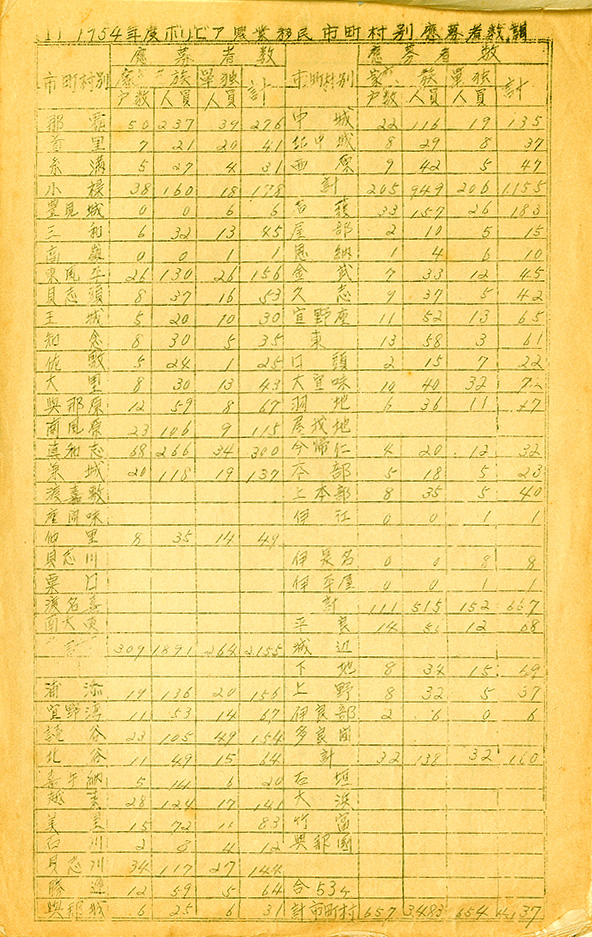 (1) 1954年度ボリビア農業移民市町村別應募者数調
市町村別 應募者数 市町村別 應募者数
家族 單独 計 家族 單独 計
戸数 人員 人員 戸数 人員 人員
那覇 50 237 39 276 中城 22 116 19 135
首里 7 21 20 41 北中城 8 29 8 37
糸満 5 27 4 31 西原 9 42 5 47
小禄 38 160 18 178 計 205 949 206 1155
豊見城 0 0 6 6 名護 33 157 26 183
三和 6 32 13 45 屋部 2 10 5 15
高嶺 0 0 1 1 恩納 1 4 6 10
東風平 26 130 26 156 金武 7 33 12 45
具志頭 8 37 16 53 久志 9 37 5 42
玉城 5 20 10 30 宜野座 11 52 13 65
知念 8 30 5 35 東 13 58 3 61
佐敷 5 24 1 25 国頭 2 15 7 22
大里 8 30 13 43 大宜味 10 40 32
與那原 12 59 8 67 羽地 6 36 11 47
南風原 23 106 9 115 屋我地
真和志 68 266 34 300 今帰仁 4 20 12 32
兼城 20 118 19 137 本部 5 18 5 23
渡嘉敷 上本部 8 35 5 40
座間味 伊江 0 0 1 1
仲里 8 35 14 49
具志川 伊是名 0 0 8 8
粟国 伊平屋 0 0 1 1
渡名喜 計 111 515 152 667
南大東 平良 14 56 12 68
計 309 1891 264 2155 城辺
下地 8 34 15 49
浦添 19 136 20 156 上野 8 32 5 37
宜野湾 11 53 14 67 伊良部 2 6 0 6
読谷 23 105 49 154 多良間
北谷 11 49 15 64 計 32 128 32 160
嘉手納 5 14 6 20 石垣
越来 28 124 17 141 大浜
美里 15 72 11 83 竹富
石川 2 8 4 12 與那國
具志川 34 117 27 144
勝連 12 59 5 64 合 53ヶ
與那城 6 25 6 31 計 市町村 657 3483 654 4137